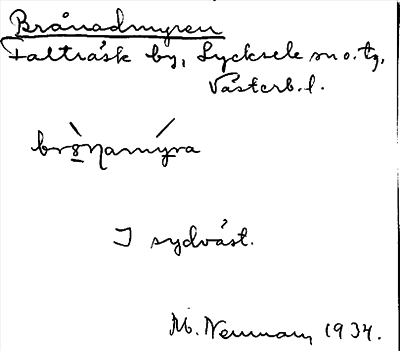 Brånadmyren
Falträsk by, Lycksele sn o. tg,
Västerb. l.
I sydväst.
M. Neuman, 1934.